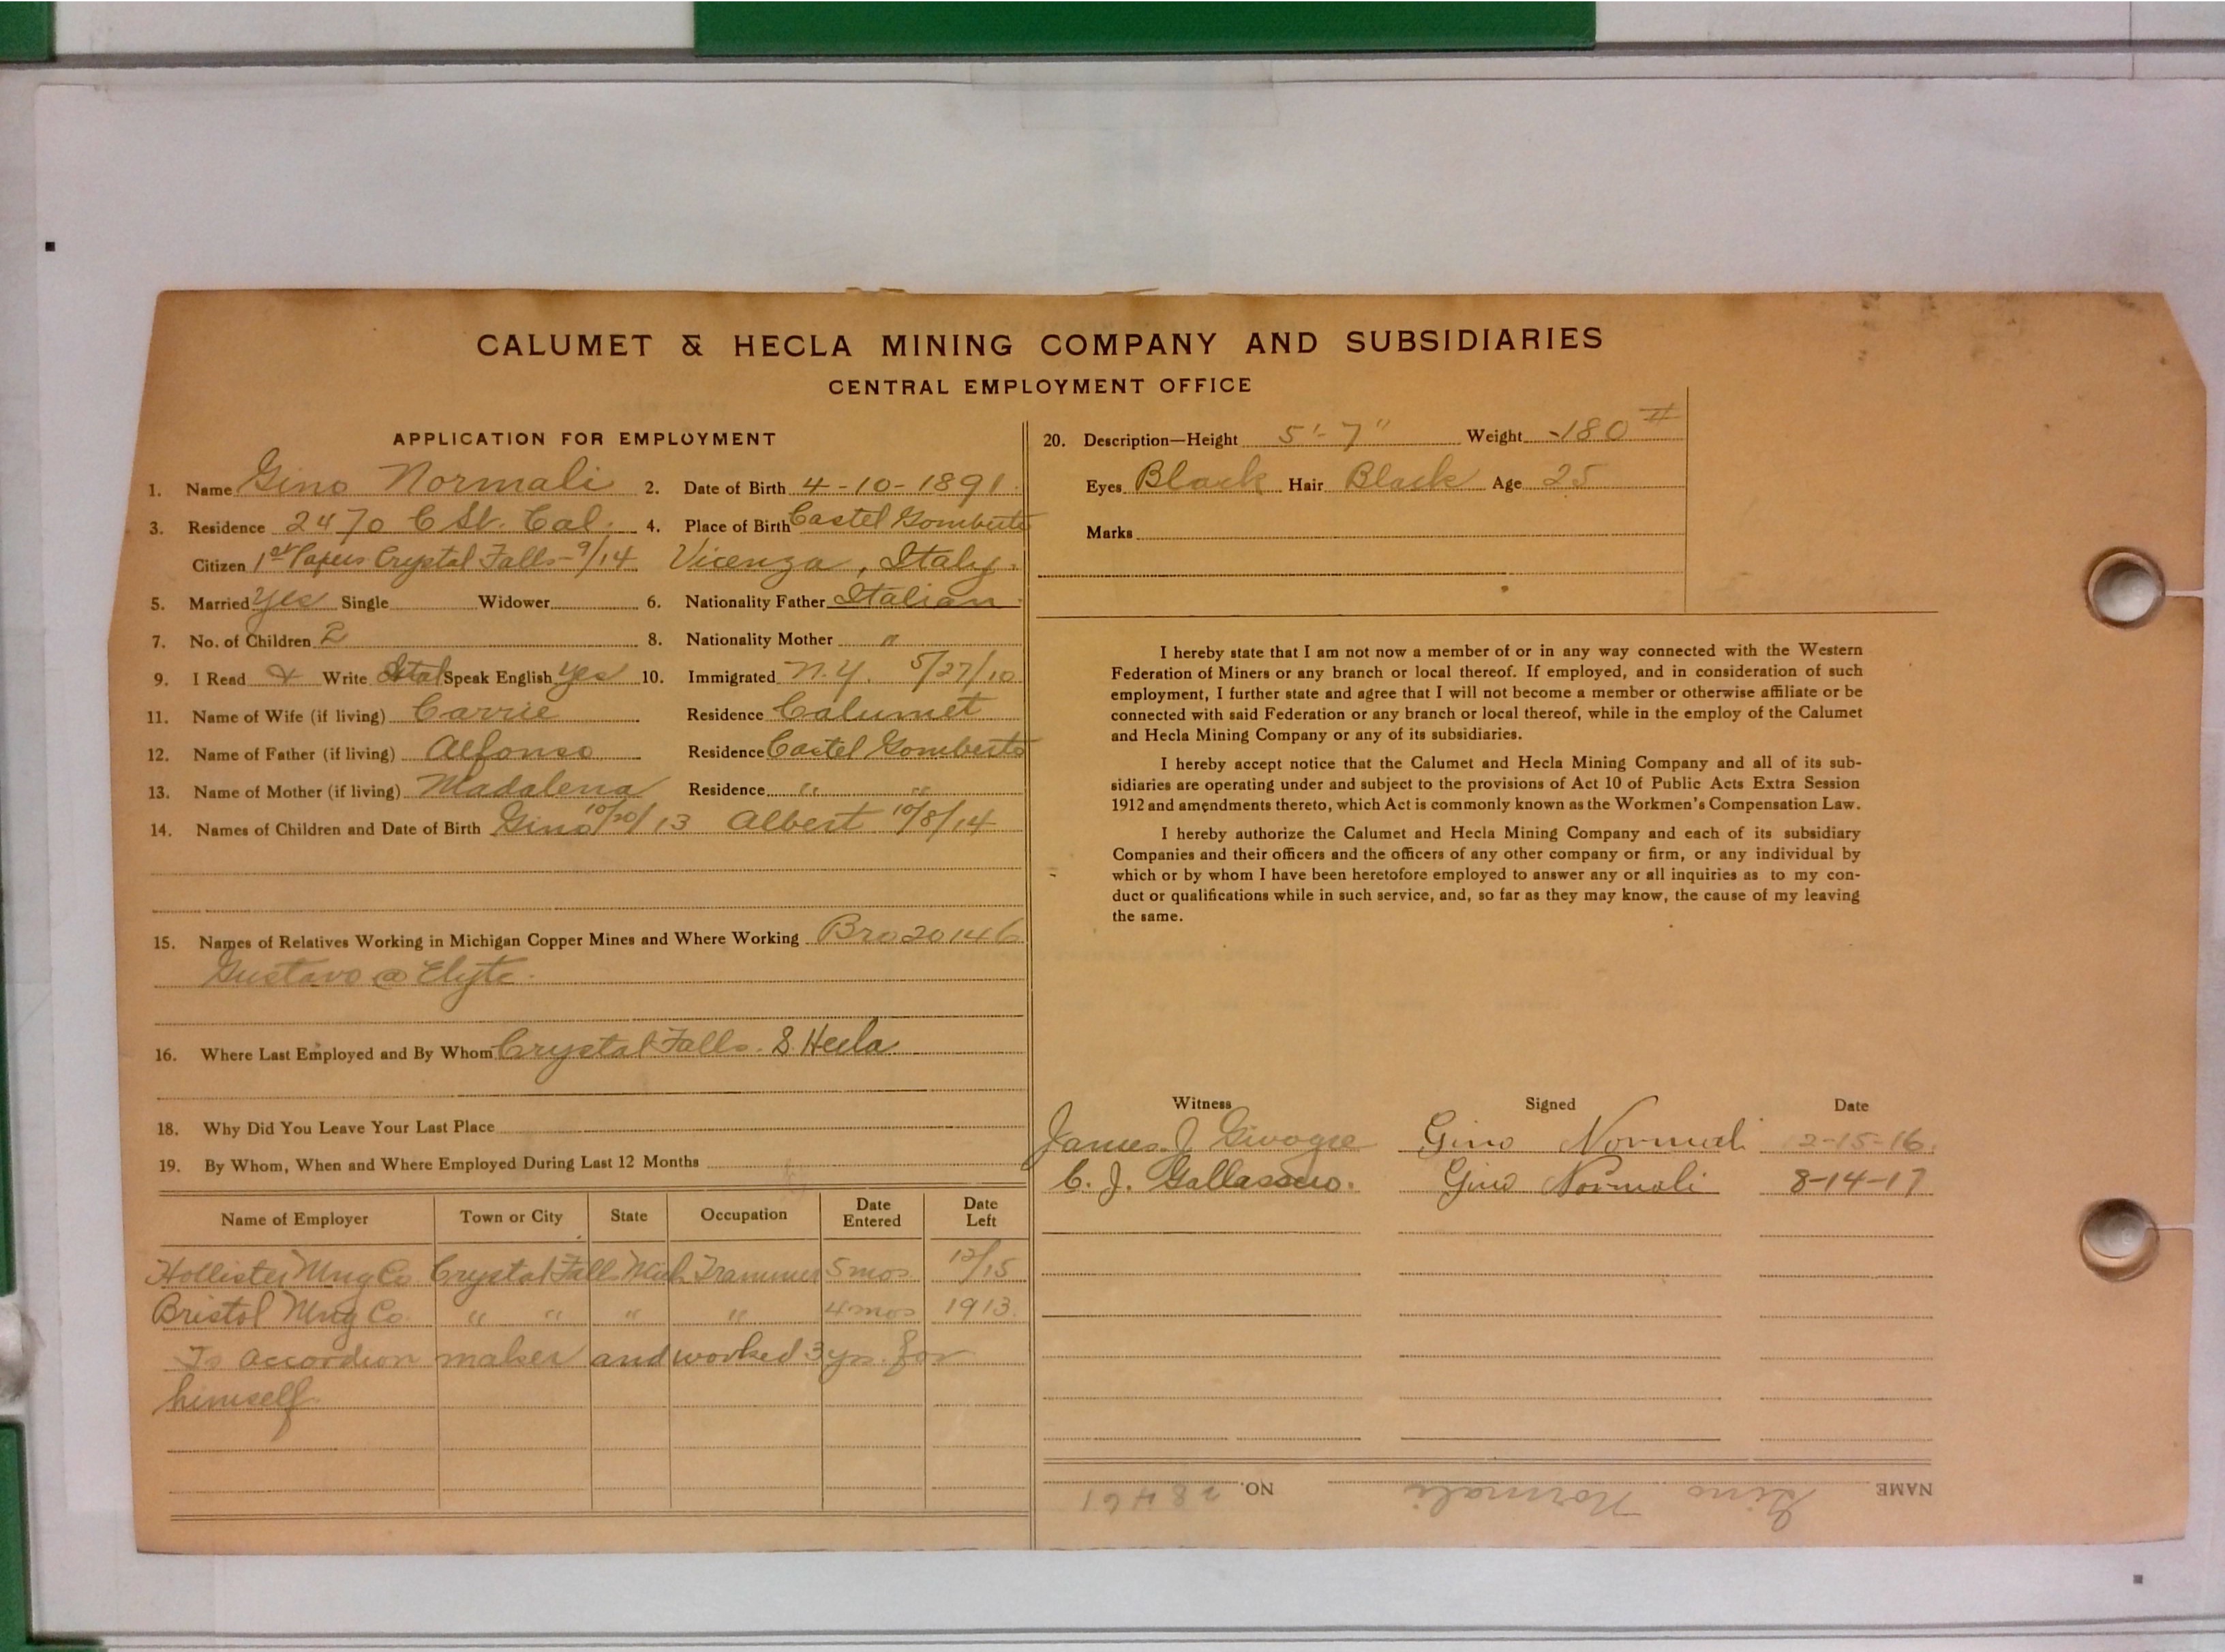 CALUMET & HECLA MINING COMPANY AND SUBSIDIARIES
CENTRAL EMPLOYMENT OFFICE
APPLICATION FOR EMPLOYMENT
1. Name Gino Normali 2. Date of Birth 4-10-1891
3. Residence 2470 C St. Cal. 4. Place of Birth Castel Gomberto
Citizen 1st Papers Crystal Falls - 9/14 Vicenza, Italy.
5. Married Yes Single Widower 6. Nationality Father Italian
7. No. of Children 2 8. Nationality Mother "
9. I Read & Write Ital Speak English Yes 10. Immigrated N.Y. 5/27/10
11. Name of Wife (if living) Carrie Residence Calumet
12. Name of Father (if living) Alfonso Residence Castel Gomberto
13. Name of Mother (if living) Madalena Residence " "
14. Names of Children and Date of Birth Gino 10/20/13 Albert 10/8/14
15. Names of Relatives Working in Michigan Copper Mines and Where Working Bro 20146
Gustavo @
16. Where Last Employed and By Whom Crystal Falls. S. Hecla
18. Why Did You Leave Your Last Place
19. By Whom, When and Where Employed During Last 12 Months
Name of Employer Town or City State Occupation Date Entered Date Left
Hollister Mng Co. Crystal Falls Mich Trammer 5 mos 12/15
Bristol Mng Co. " " " " 4 mos 1913
Is accordion maker and worked 3 yrs. for
himself
20. Description—Height 5'-7" Weight -180 #
Eyes Black Hair Black Age 25
Marks
I hereby state that I am not now a member of or in any way connected with the Western
Federation of Miners or any branch or local thereof. If employed, and in consideration of such
employment, I further state and agree that I will not become a member or otherwise affiliate or be
connected with said Federation or any branch or local thereof, while in the employ of the Calumet
and Hecla Mining Company or any of its subsidiaries.
I hereby accept notice that the Calumet and Hecla Mining Company and all of its sub-
sidiaries are operating under and subject to the provisions of Act 10 of Public Acts Extra Session
1912 and amendments thereto, which Act is commonly known as the Workmen's Compensation Law.
I hereby authorize the Calumet and Hecla Mining Company and each of its subsidiary
Companies and their officers and the officers of any other company or firm, or any individual by
which or by whom I have been heretofore employed to answer any or all inquiries as to my con-
duct or qualifications while in such service, and, so far as they may know, the cause of my leaving
the same.
Witness Signed Date
James J. Gino Normali 2-15-16.
C. J. Gino Normali 8-14-17
NAME Gino Normali NO. 28461